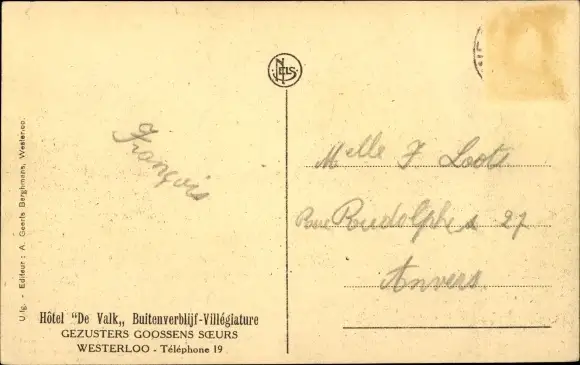 NELS
François
Melle F Loots
Rue Rudolphe 27
Anvers
Uitg. - Editeur : A. Geerts Berghmans, Westerloo.
Hôtel "De Valk„ Buitenverblijf-Villégiature
GEZUSTERS GOOSSENS SŒURS
WESTERLOO - Téléphone 19